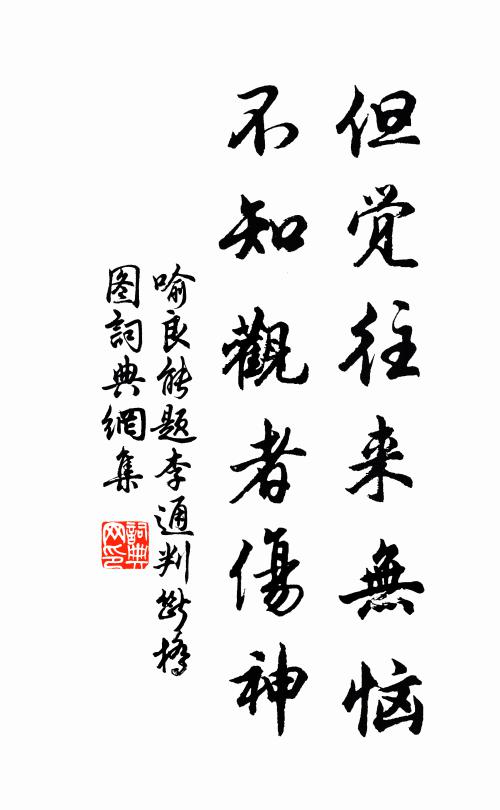 但觉往来無恼
不知觀者傷神
喻良能题李通判斷橋
图詞典網集
詞典网印